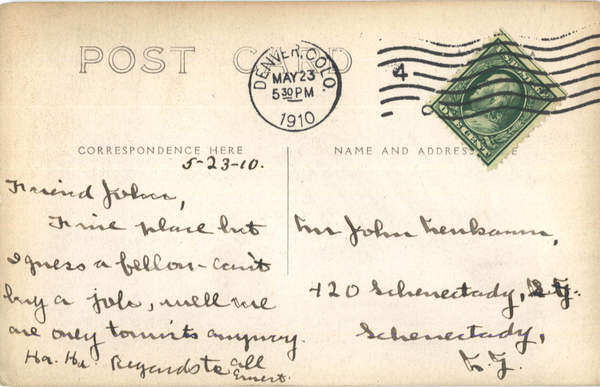 POST CARD
DENVER, COLO.
MAY 23
5 30 PM
1910
4
CORRESPONDENCE HERE
NAME AND ADDRESS
5-23-10.
Friend John,
Fine place but
I guess a fellow can't
buy a job, well we
are only tourists anyway.
Ha. Ha. Regards to all
Ernest.
Mr John
420 Schenectady,
Schenectady,
N.Y.